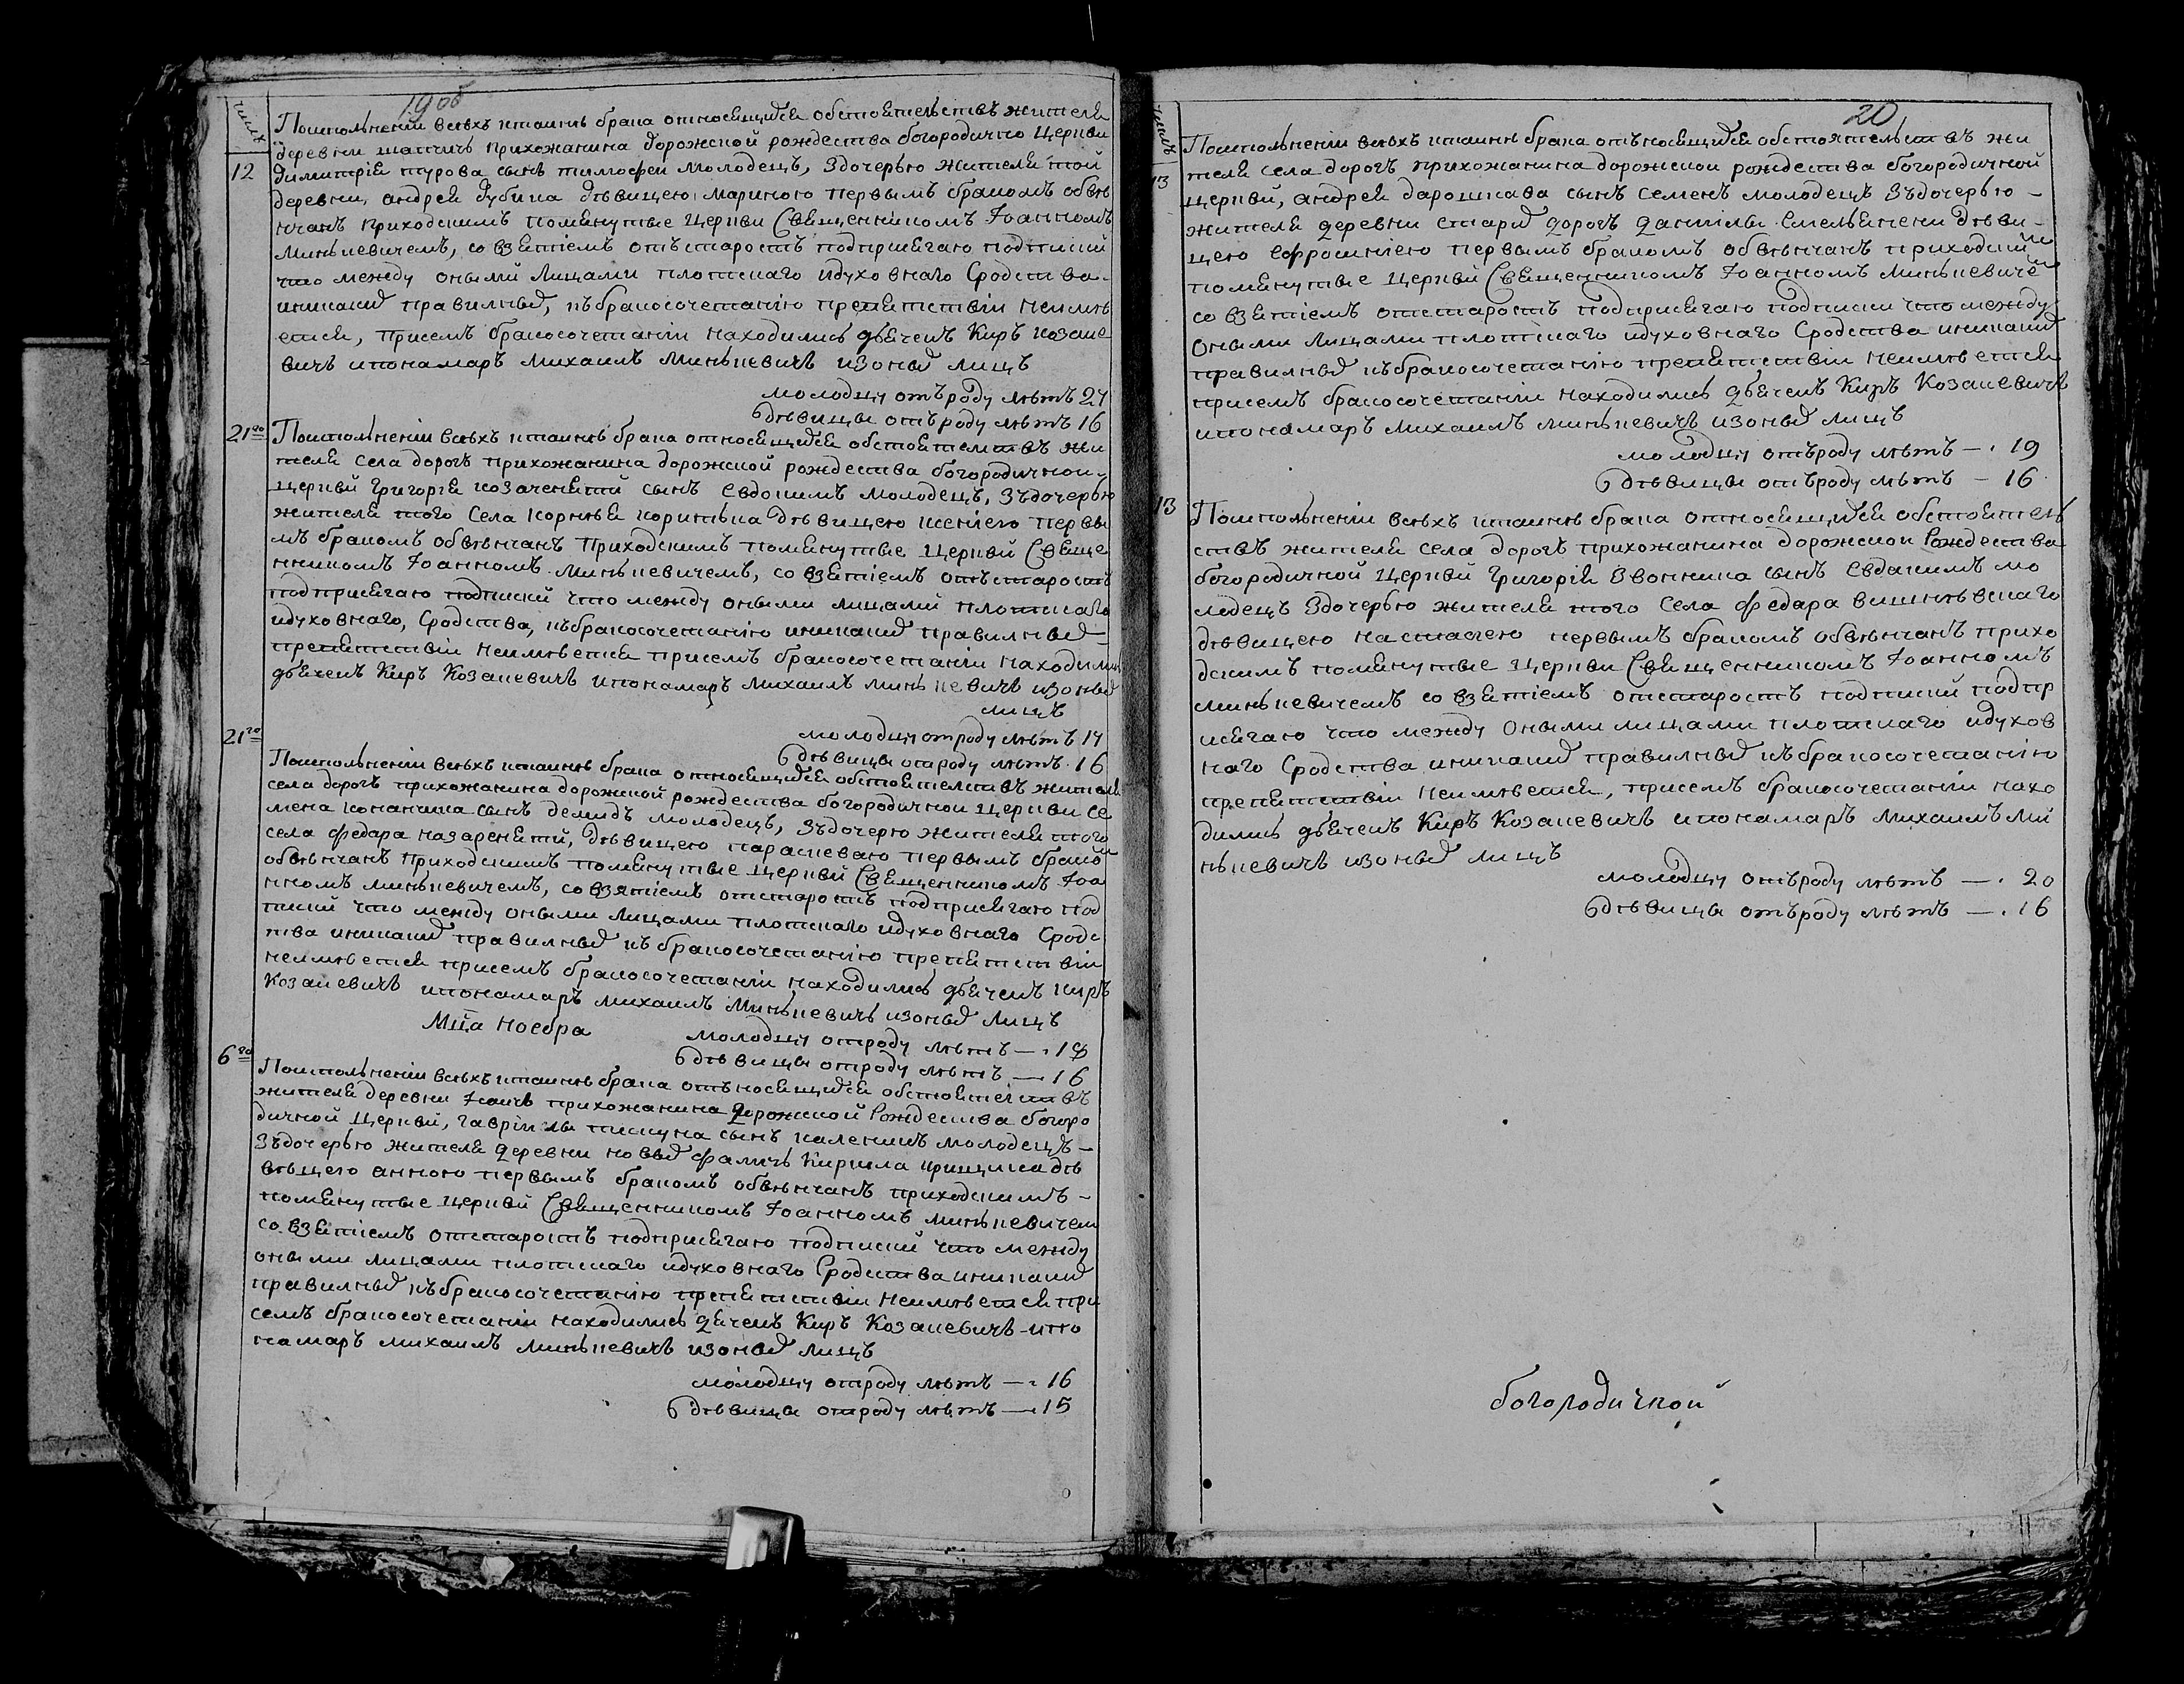 19об
число
Поисполненіи всѣхъ ктаинѣ брака относящихся обстоятельствъ жителя
деревни шапчичъ прихожанина дорожской рождества богородично церкви
12
димитрія турова сынъ тимофеи молодецъ, Здочерью жителя той
деревни, андрея дубина дѣвицею мариною первымъ бракомъ обвѣ
нчанъ приходскимъ помянутые церкви Священникомъ Іоанномъ
Минькевичемъ, со взятіемъ отъстаростъ подприсягаю подписки
что между оными лицами плотскаго идуховнаго Сродства
иникакихъ правилныхъ, къбракосочетанію препятствіи неимѣ
ется, присемъ бракосочетаніи находились дьячекъ Киръ козаке
вичъ ипонамаръ михаилъ Минькевичъ изоныхъ лицъ
молодцу отъроду лѣтъ 24
дѣвицы отъроду лѣтъ 16
21го
Поисполненіи всѣхъ ктаинѣ брака относящихся обстоятелствъ жи
теля села дорогъ прихожанина дорожской рождества богородичной
церкви григорія козаченятй сынъ евдокимъ молодецъ, Зъдочерью
жителя того села корнѣя корит&#1100;ка дѣвицею ксеніею первы
мъ бракомъ обвѣнчанъ приходскимъ помянутые церкви Свяще
нникомъ Іоанномъ минькевичемъ, со взятіемъ отъстаростъ
подприсягаю подписки что между оными лицами плотскаго
идуховнаго, Сродства, къбракосочетанію иникакихъ правилныхъ
препятствіи неимѣется присемъ бракосочетаніи находились
дьячекъ Киръ Козакевичъ ипонамаръ михаилъ минькевичъ изоныхъ
лицъ
молодцу отроду лѣтъ 17
дѣвицы отроду лѣтъ 16
21го
Поисполненіи всѣхъ ктаинѣ брака относящихся обстоятелствъ жителя
села дорогъ прихожанина дорожской рождества богородичнои церкви се
мена конанчика сынъ демидъ молодецъ, Зъдочерю жителя того
села федара назаренятй, дѣвицею параскеваю первымъ брако
обвѣнчанъ приходскимъ помянутые церкви Священникомъ Іоа
нномъ минькевичемъ, совзятіемъ отстаростъ подприсягаю под
писки что между оными лицами плотскаго идуховнаго Сродс
тва иникакихъ правилныхъ къбракосочетанію препятствіи
неимѣется присемъ бракосочетаніи находились дьячекъ киръ
козакевичъ ипонамаръ михаилъ минькевичъ изоныхъ лицъ
Мца ноября
молодцу отроду лѣтъ — 18
дѣвицы отроду лѣтъ — 16
6го
Поисполненіи всѣхъ ктаинѣ брака отъносящихся обстоятелствъ
жителя деревни прихожанина дорожской Рождества богоро
дичной церкви, гаврилы тискуна сынъ каленикъ молодецъ —
Зъдочерью жителя деревни новыхъ фаличъ кирила дѣ
вѣцею анною первымъ бракомъ обвѣнчанъ приходскимъ —
помянутые церкви Священникомъ Іоанномъ минькевичем
со взятіемъ отстаростъ подприсягаю подписки что между
оными лицами плотскаго идуховнаго Сродства иникакихъ
правилныхъ къбракосочетанію препятствіи неимѣется при
семъ бракосочетаніи находились дячекъ Киръ Козакевичъ ипо
намаръ михаилъ минькевичъ изоныхъ лицъ
молодцу отроду лѣтъ — 16
дѣвицы отроду лѣтъ — 15
20
число
Поисполненіи всѣхъ ктаинѣ брака отъносящихся обстоятельствъ жи
13
теля села дорогъ прихожанина дорожскои рождества богородичной
церкви, андрея дарошкава сынъ семенъ молодецъ Зъдочерью —
жителя деревни старихъ дорогъ данилы емельянени дѣви —
цею ефросиніею первымъ бракомъ обвѣнчанъ приходский
помянутые церкви Священникомъ Іоанномъ минькевиче
со взятіемъ отстаростъ подприсягаю подписки что между
оными лицами плотскаго идуховнаго Сродства иникакихъ
правилныхъ къбракосочетанію препятствіи неимѣется
присемъ бракосочетаніи находились дьячекъ Киръ Козакевичъ
ипонамаръ михаилъ минькевичъ изоныхъ лицъ
молодцу отъроду лѣтъ — 19
дѣвицы отъроду лѣтъ — 16
13
Поисполненіи всѣхъ ктаинѣ брака относящихся обстоятель
ствъ жителя села дорогъ прихожанина дорожскои Рождества
богородичной церкви григорія Звонника сынъ евдакимъ мо
лодецъ Здочерью жителя того села федара вишнѣвскаго
дѣвицею настасіею первымъ бракомъ обвѣнчанъ прихо
дскимъ помянутые церкви Священникомъ Іоанномъ
минькевичемъ со взятіемъ отстаростъ подписки подпр
исягаю что между оными лицами плотскаго идухов
наго Сродства иникакихъ правилныхъ къбракосочетанію
препятствіи неимѣется, присемъ бракосочетаніи нахо
дились дьячекъ Киръ Козакевичъ ипонамаръ михаилъ ми
нькевичъ изоныхъ лицъ
молодцу отъроду лѣтъ — 20
дѣвицы отъроду лѣтъ — 16
богородичной